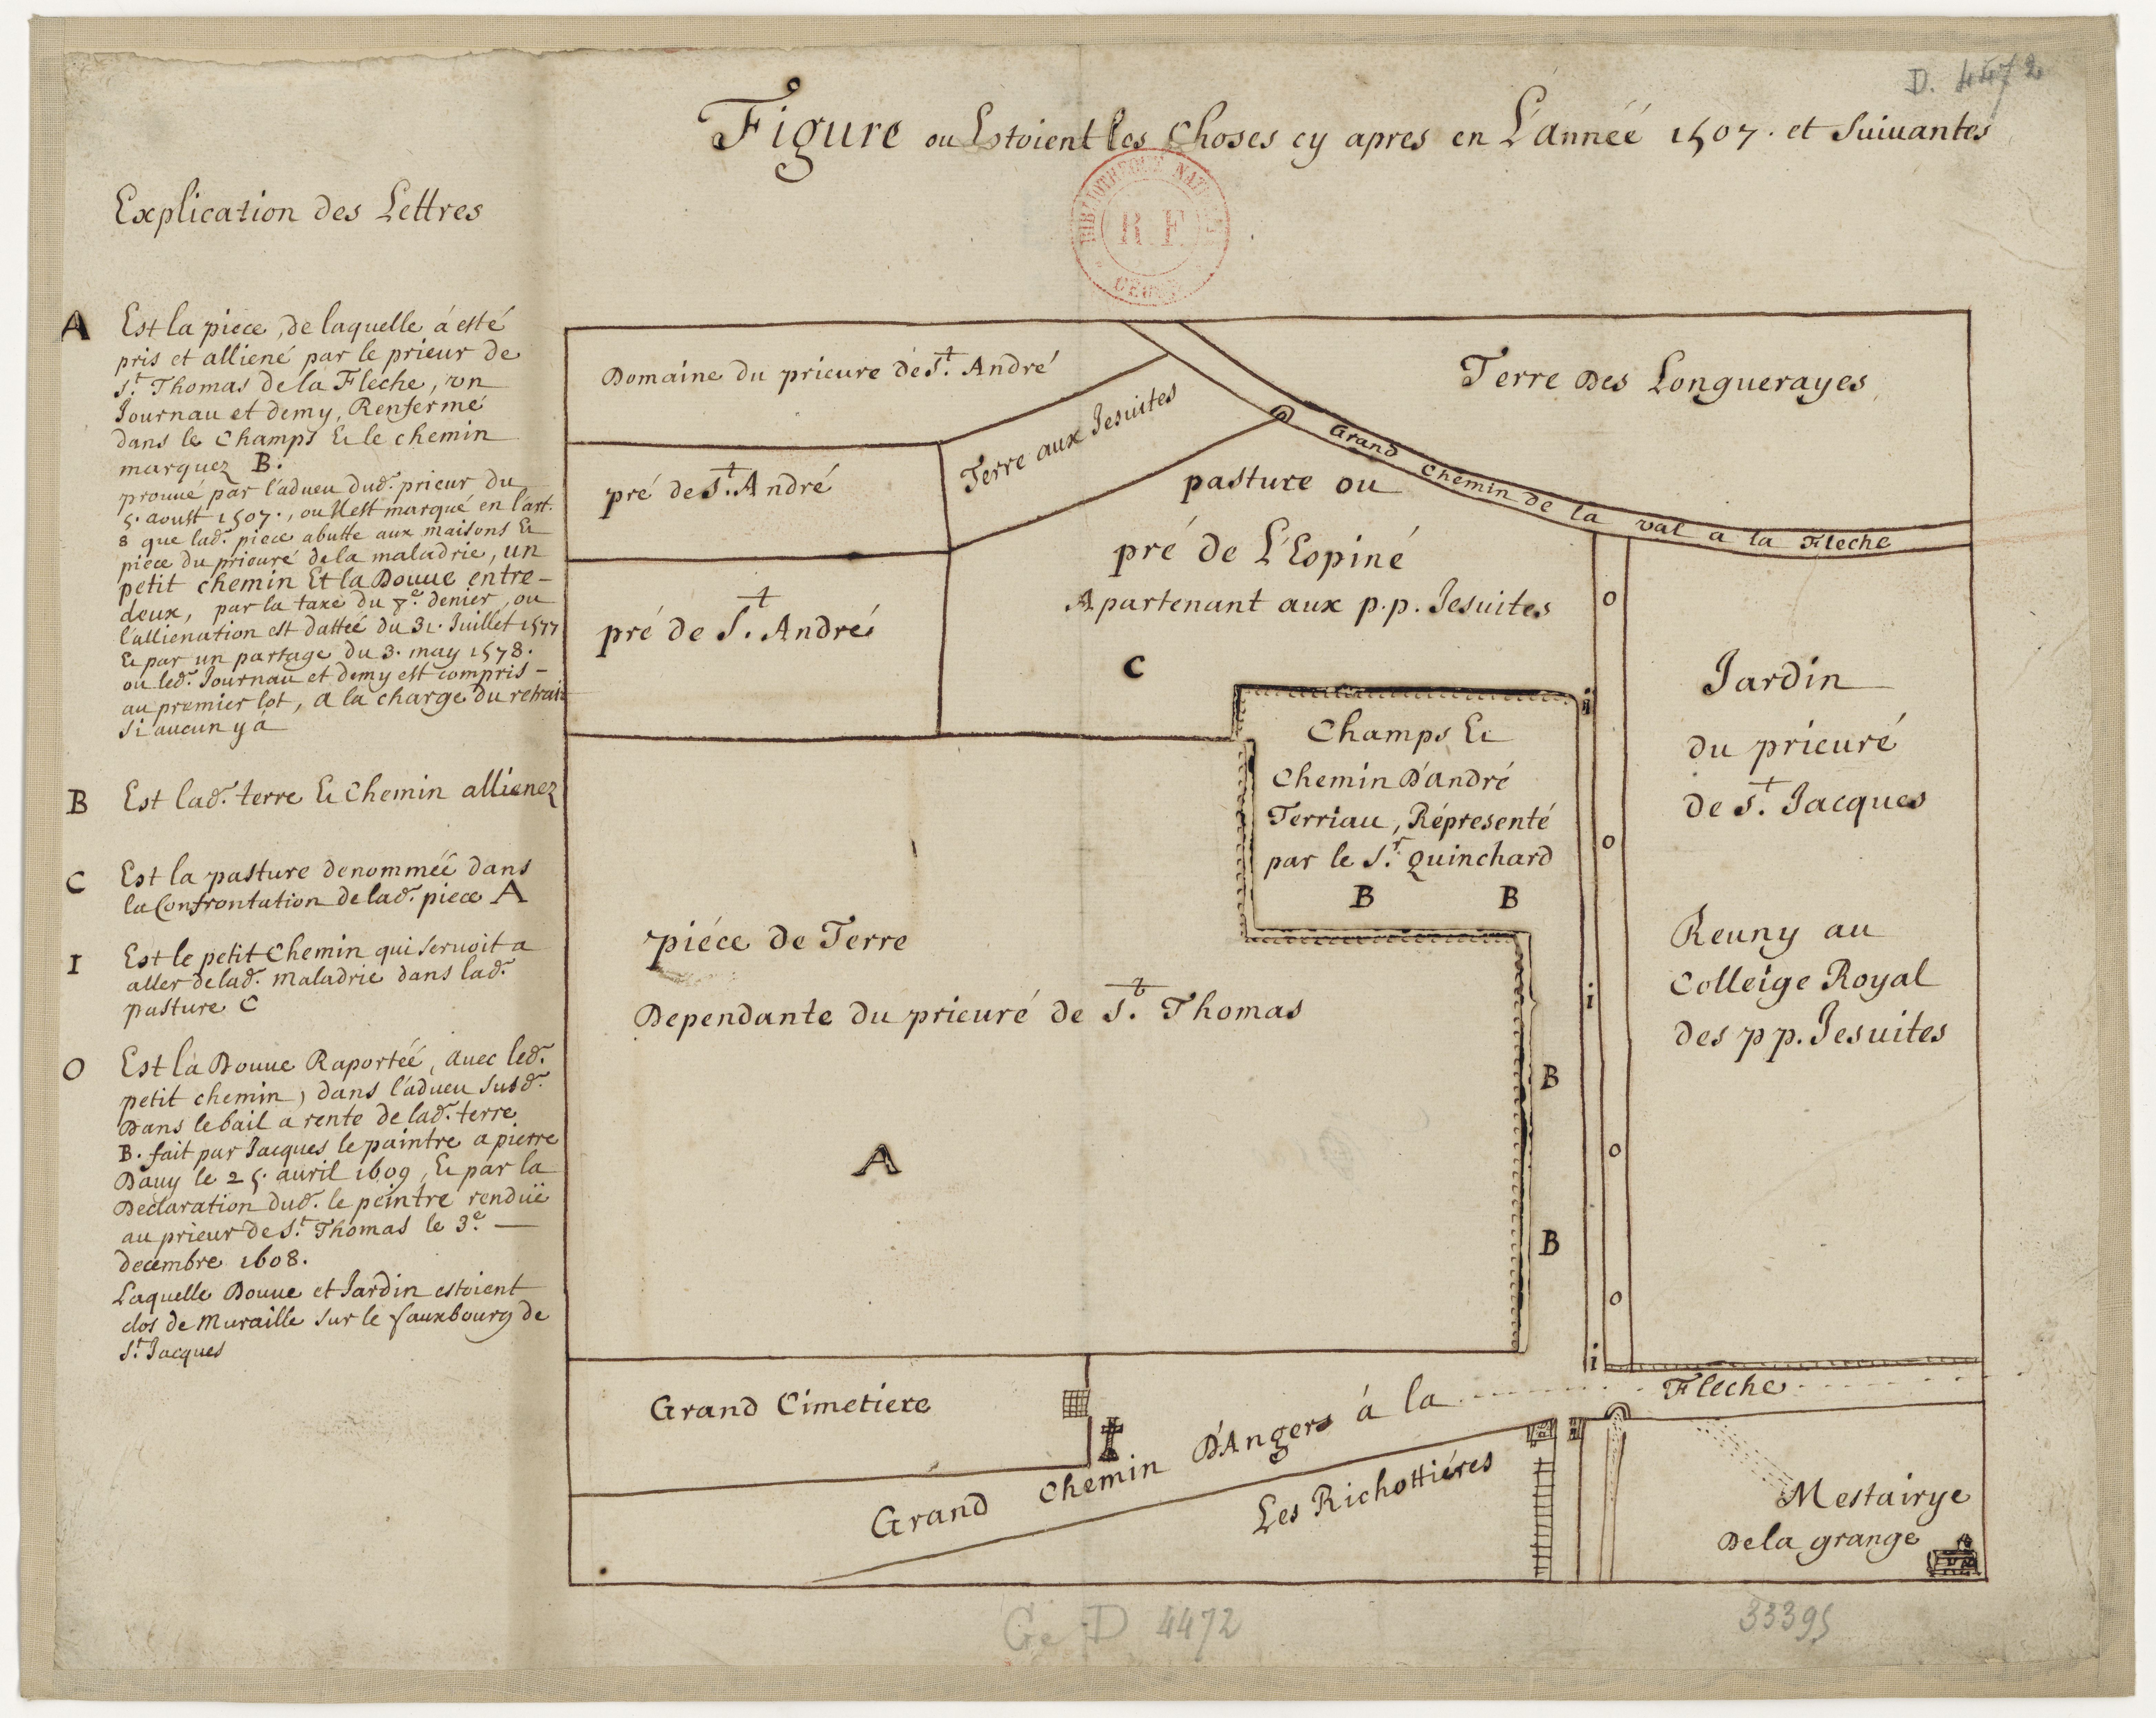 D. 4472
Figure ou Estoient les Choses cy apres en L'année 1507. et Suiuantes
BIBLIOTHEQUE NATIONALE
R F
Explication des Lettres
A Est la piece, de laquelle á esté
pris et alliené par le prieur de
St. Thomas de la Fleche, vn
Journau et demy, Renfermé
dans le Champs Et le chemin
marquez B.
prouué par l'adueu dud. prieur du
5. aoust 1507., ou Il est marqué en l'art.
8 que lad. piece abutte aux maisons Et
piece du prieuré de la maladrie, un
petit chemin Et la Douue entre-
deux, par la taxe du 8e. denier, ou
l'allienation est dattéé du 31. Juillet 1577
Et par un partage du 3. may 1578.
ou led. Journau et demy est compris-
au premier lot, a la charge du retrait
si aucun y á
B Est lad. terre Et Chemin allienez
C Est la pasture denomméé dans
la Confrontation de lad. piece A
I Est le petit Chemin qui seruoit a
aller de lad. maladrie dans lad.
pasture C
O Est la Douue Raportéé, auec led.
petit chemin, dans l'adueu susd.
Dans le bail a rente de lad. terre
B. fait par Jacques le paintre a pierre
Dauy le 25. auril 1609, Et par la
Declaration dud. le peintre renduë
au prieur de St. Thomas le 3e.
decembre 1608.
Laquelle Douue et Jardin estoient
clos de muraille sur le fauxbourg de
St. Jacques
Domaine du prieure de St. André
Terre Des Longuerayes
Terre aux Jesuites
Grand Chemin de la val a la Fleche
pré de St. André
pasture ou
pré de L'Espiné
Apartenant aux p.p. Jesuites
C
pré de St. André
o
i
Champs Et
Chemin D'andré
Terriau, Répresenté
par le Sr. Quinchard
B B
o
Jardin
du prieuré
de St. Jacques
Reuny au
Colleige Royal
des pp. Jesuites
piéce de Terre
Dependante du prieuré de St. Thomas
A
i
B
o
B
o
i
Grand Cimetiere
Grand Chemin D'Angers á la Fleche
Les Richottiéres
Mestairye
De la grange
Ge D 4472
33395